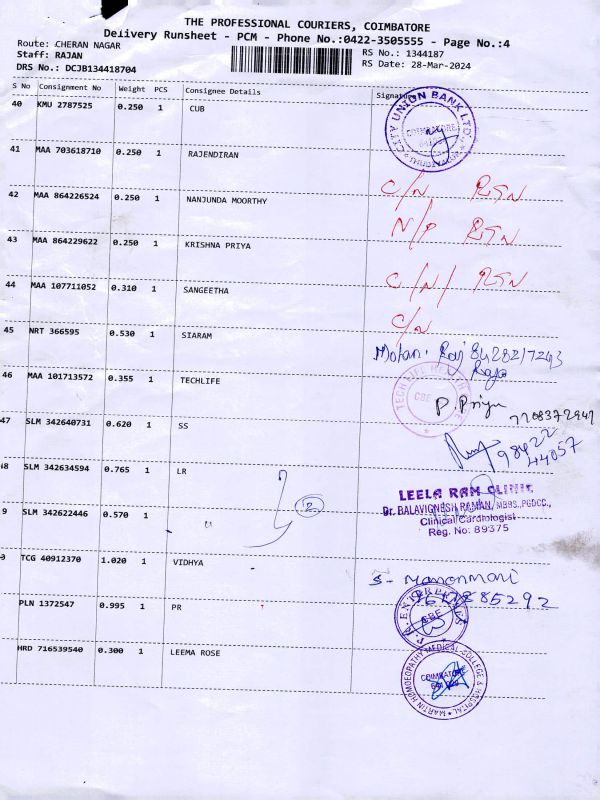 THE PROFESSIONAL COURIERS, COIMBATORE
Delivery Runsheet - PCM - Phone No.:0422-3505555 - Page No.:4
Route: CHERAN NAGAR
Staff: RAJAN
DRS No.: DCJB134418704
RS No.: 1344187
RS Date: 28-Mar-2024
S No Consignment No Weight PCS Consignee Details Signature
40 KMU 2787525 0.250 1 CUB
CITY UNION BANK LTD.
COIMBATORE
41 MAA 703618710 0.250 1 RAJENDIRAN C/N RTN
42 MAA 864226524 0.250 1 NANJUNDA MOORTHY N/P RTN
43 MAA 864229622 0.250 1 KRISHNA PRIYA C/N/ RTN
44 MAA 107711052 0.310 1 SANGEETHA C/N
45 NRT 366595 0.530 1 SIARAM
46 MAA 101713572 0.355 1 TECHLIFE
CBE
P. Priya
47 SLM 342640731 0.620 1 SS
98422
44057
48 SLM 342634594 0.765 1 LR
LEELA RAM CLINIC
Dr. BALAVIGNESH RAMAN, MBBS.,PGDCC.,
Clinical Cardiologist
Reg. No: 89375
9 SLM 342622446 0.570 1 " 2
TCG 40912370 1.020 1 VIDHYA
S. Manonmani
PLN 1372547 0.995 1 PR
ENTERPRISES
CBE
HRD 716539540 0.300 1 LEEMA ROSE
MARTIN HOMOEOPATHY MEDICAL COLLEGE & HOSPITAL
COIMBATORE